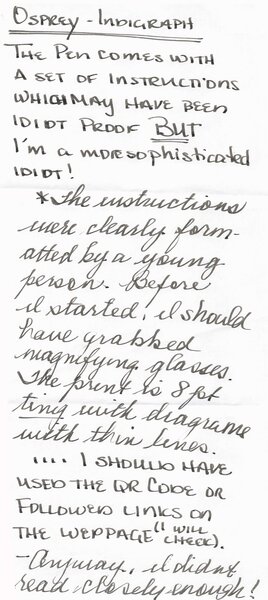 OSPREY - INDIGRAPH
THE PEN COMES WITH
A SET OF INSTRUCTIONS
WHICH MAY HAVE BEEN
IDIOT PROOF BUT
I'm a more sophisticated
IDIOT!
*The instructions
were clearly form-
atted by a young
person. Before
I started, I should
have grabbed
magnifying glasses.
The print is 8 pt
ting with diagrams
with thin lines.
.... I SHOULD HAVE
USED THE QR CODE OR
FOLLOWED LINKS ON
THE WEBPAGE (I WILL
CHECK).
-Anyway, I didn't
read closely enough!